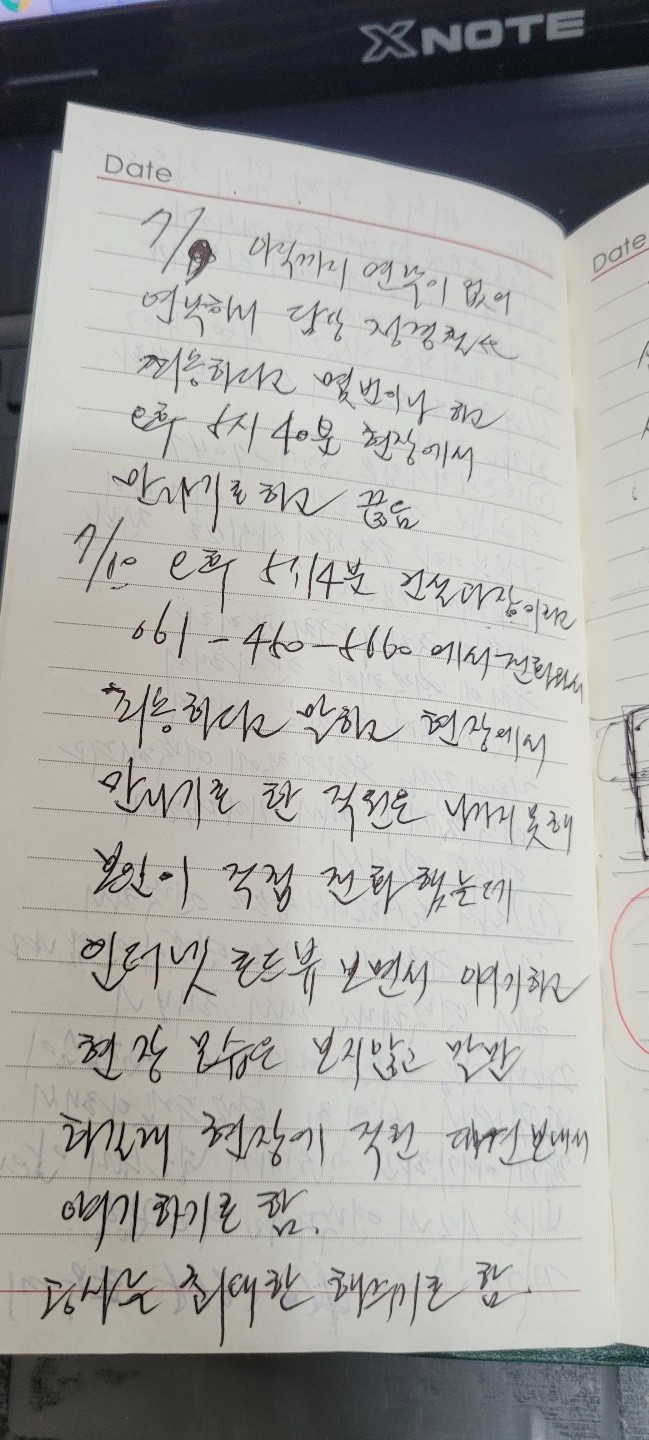 XNOTE
Date
7/9 아직까지 연락이 없어
연락하니 담당 정경철씨
죄송하다고 몇번이나 하고
오후 5시 40분 현장에서
만나기로 하고 끊음
7/10 오후 5시4분 건설과장이라고
061-450-5660 에서 전화와서
죄송하다고 말하고 현장에서
만나기로 한 직원은 나가지 못해
본인이 직접 전화했는데
인터넷 로드뷰 보면서 얘기하고
현장 모습은 보지않고 말만
하길래 현장에 직원 보내서
얘기 하기로 함.
공사는 최대한 해주기로 함.
Date